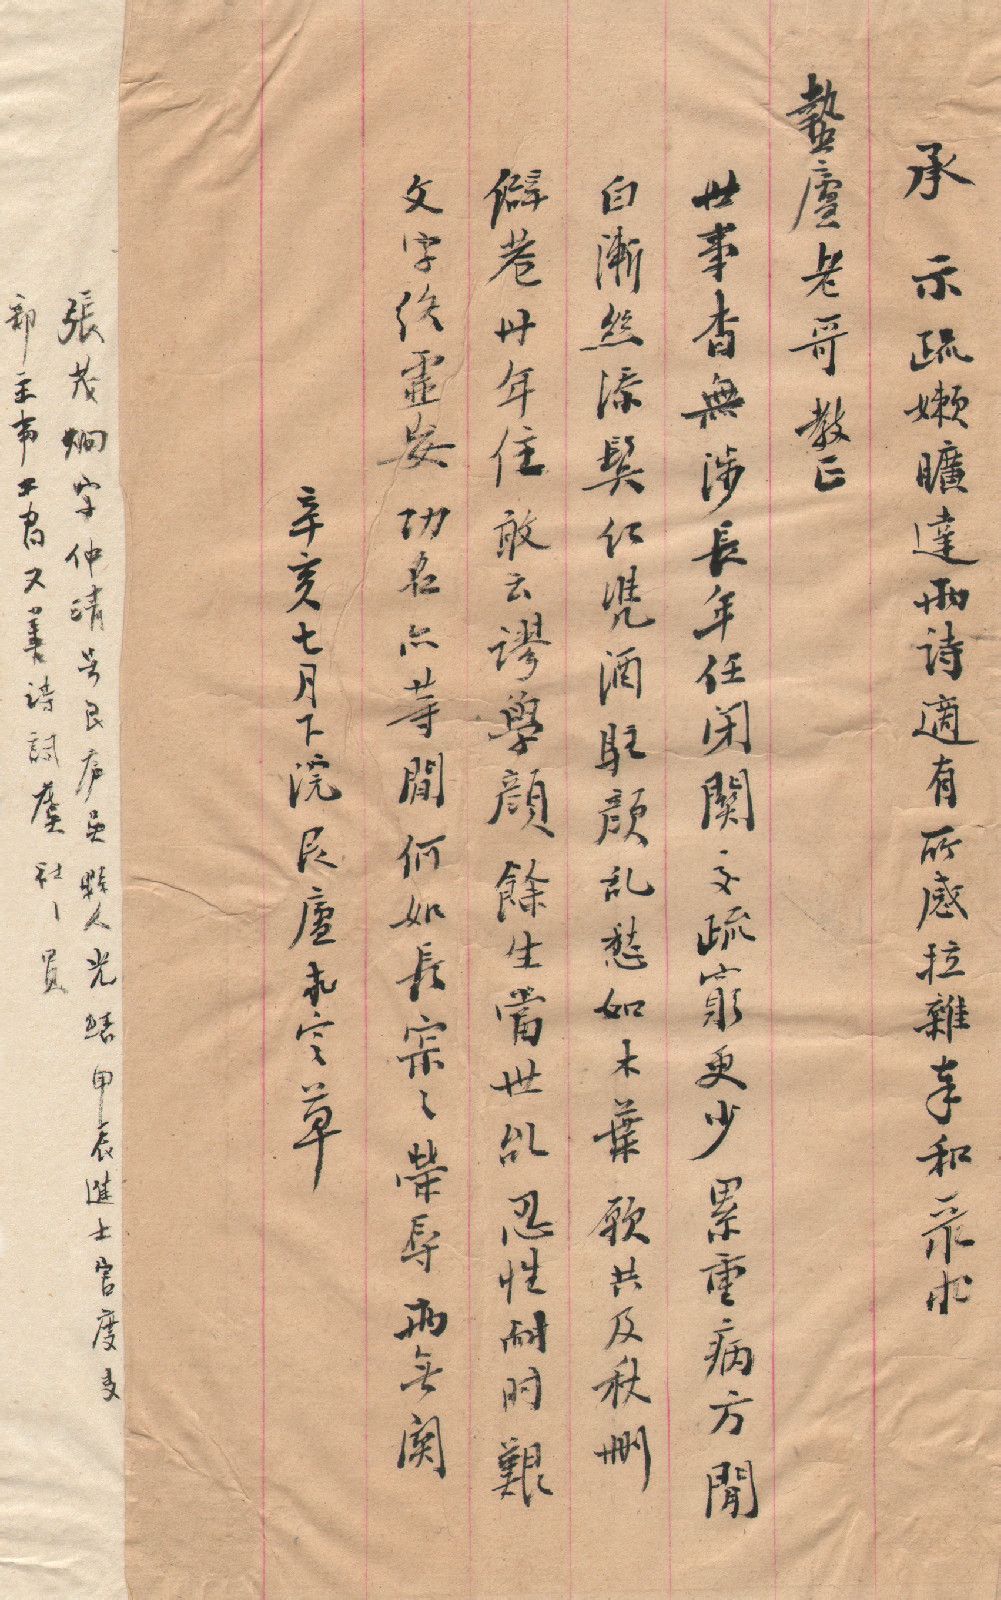 承 示疏嬾曠達兩詩適有所感拉雜奉和录求
蟄廬老哥教正
世事杳無涉長年任閉關交疏窮更少累重病方閒
白漸絲添鬓紅凭酒駐顔乱愁如木葉願共及秋删
僻巷廿年住敢云謬學顔餘生當世乱忍性耐時艱
文字終虚妄功名亦等閒何如長寂〻榮辱兩無関
辛亥七月下浣艮廬未定草
張茂炯字仲清号艮庐吳縣人光緒甲辰進士官度支
部主事工書又善詩詞 社員